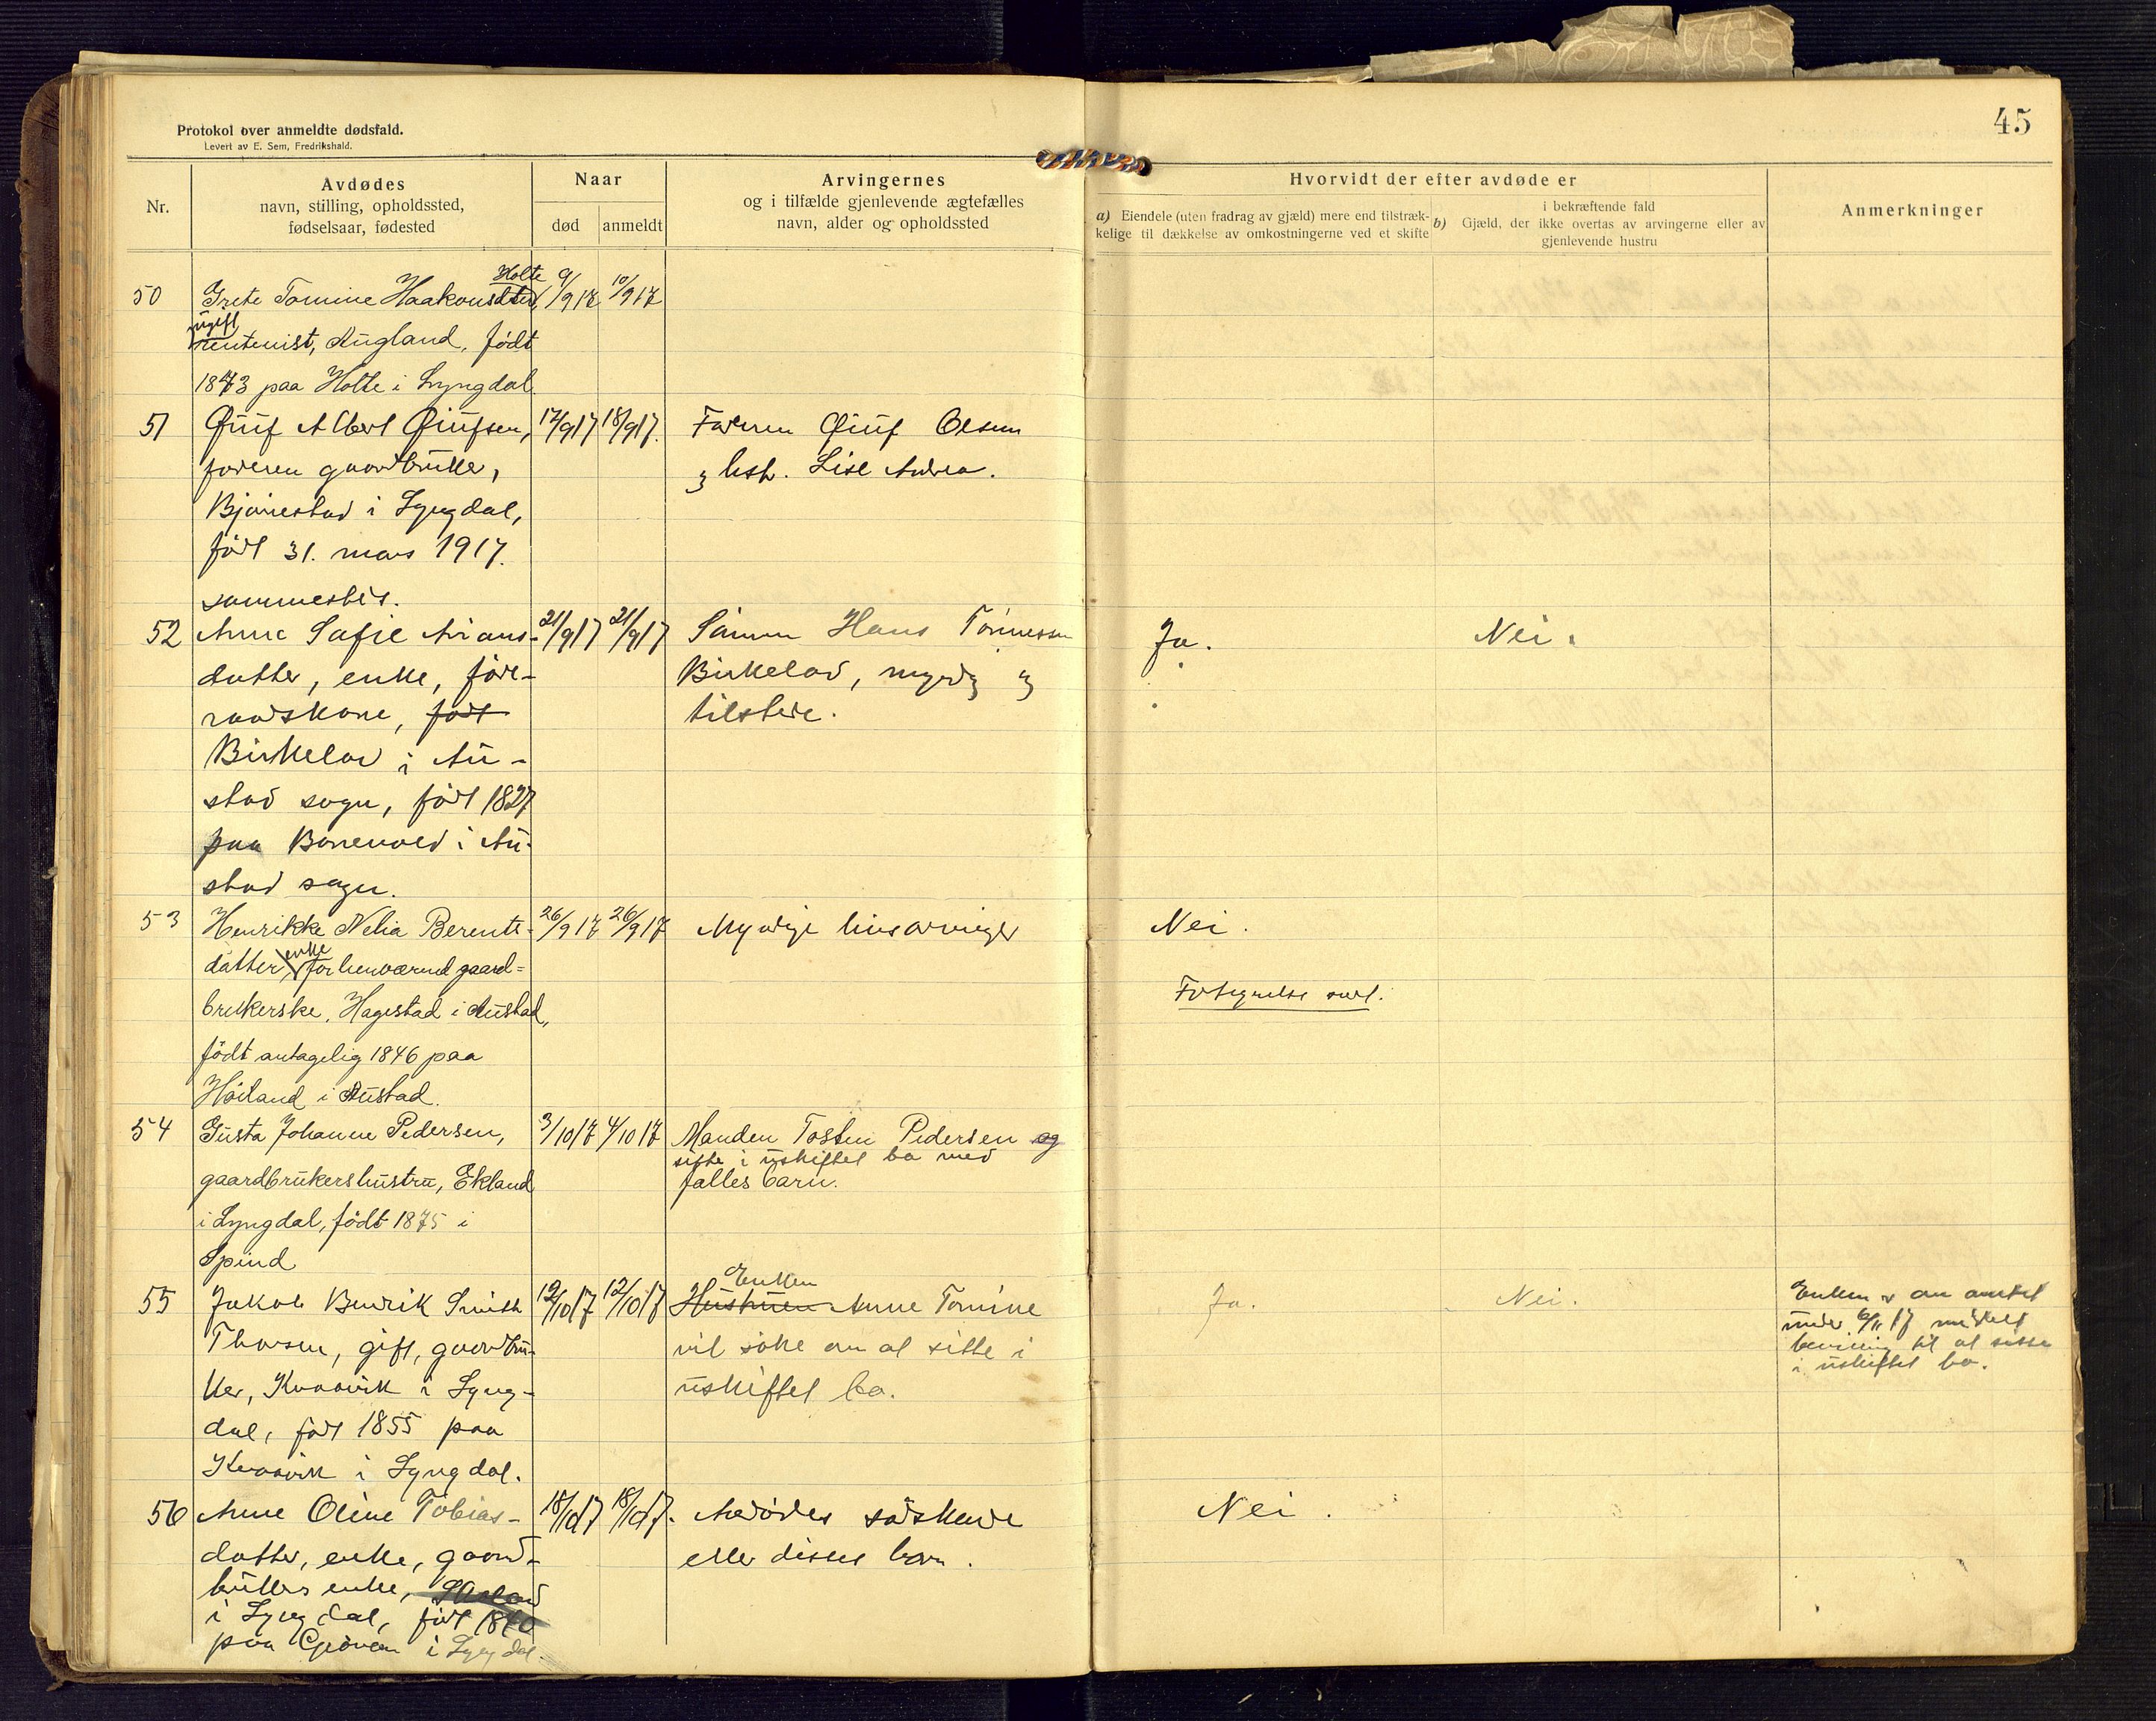 45
Protokol over anmeldte dødsfald.
Levert av E. Sem, Fredrikshald.
Nr.
Avdødes
navn, stilling, opholdssted,
fødselsaar, fødested
Naar
død
anmeldt
Arvingernes
og i tilfælde gjenlevende ægtefælles
navn, alder og opholdssted
Hvorvidt der efter avdøde er
a) Eiendele (uten fradrag av gjæld) mere end tilstræk-
kelige til dækkelse av omkostningerne ved et skifte
i bekræftende fald
b) Gjæld, der ikke overtas av arvingerne eller av
gjenlevende hustru
Anmerkninger
50 Grete Tomine Haakonsdtr, Holte 9/9 17 10/9 17
ugift
rentenist, Augland, født
1873 paa Holte i Lyngdal.
51 Albert 17/9 17 18/9 17. Faderen Olsen
faderen gaardbruker, og hstr. Lise Andrea.
i Lyngdal,
født 31. mars 1917.
sammesteds.
52 Anne Sofie 21/9 17 21/9 17 Sønnen Hans Tønnessen Ja. Nei.
datter, enke, føde- Birkeland, myndig og
raadskone, født tilstede.
Birkeland i Au-
stad sogn, født 1827
paa i Au-
stad sogn.
53 Henrikke Nelia Berents- 26/9 17 26/9 17 Myndige livsarvinger Nei.
datter, enke, forhenværende gaard-
brukerske, Hagestad i Austad, Fortegnelse
født antagelig 1846 paa
Høiland i Austad.
54 Gusta Johanne Pedersen, 3/10 17 4/10 17 Manden Tosten Pedersen og
sitte i uskiftet bo med
gaardbrukershustru, Ekland fælles barn.
i Lyngdal, født 1875 i
Spind
55 Jakob Benrik Smith 12/10 17 12/10 17 Hustruen Enken Anne Tomine Ja. Nei.
Thorsen, gift, gaardbru- vil søke om at sitte i
ker, Kvaavik i Lyng- uskiftet bo.
dal, født 1855 paa
Kvaavik i Lyngdal.
Enken er av amtet
under 6/11 17 meddelt
bevilling til at sitte
i uskiftet bo.
56 Anne Oline Tobias- 18/10 17 18/10 17. Avdødes søskende Nei.
datter, enke, gaard- eller disses barn.
brukers enke,
i Lyngdal, født 1840
paa i Lyngdal.